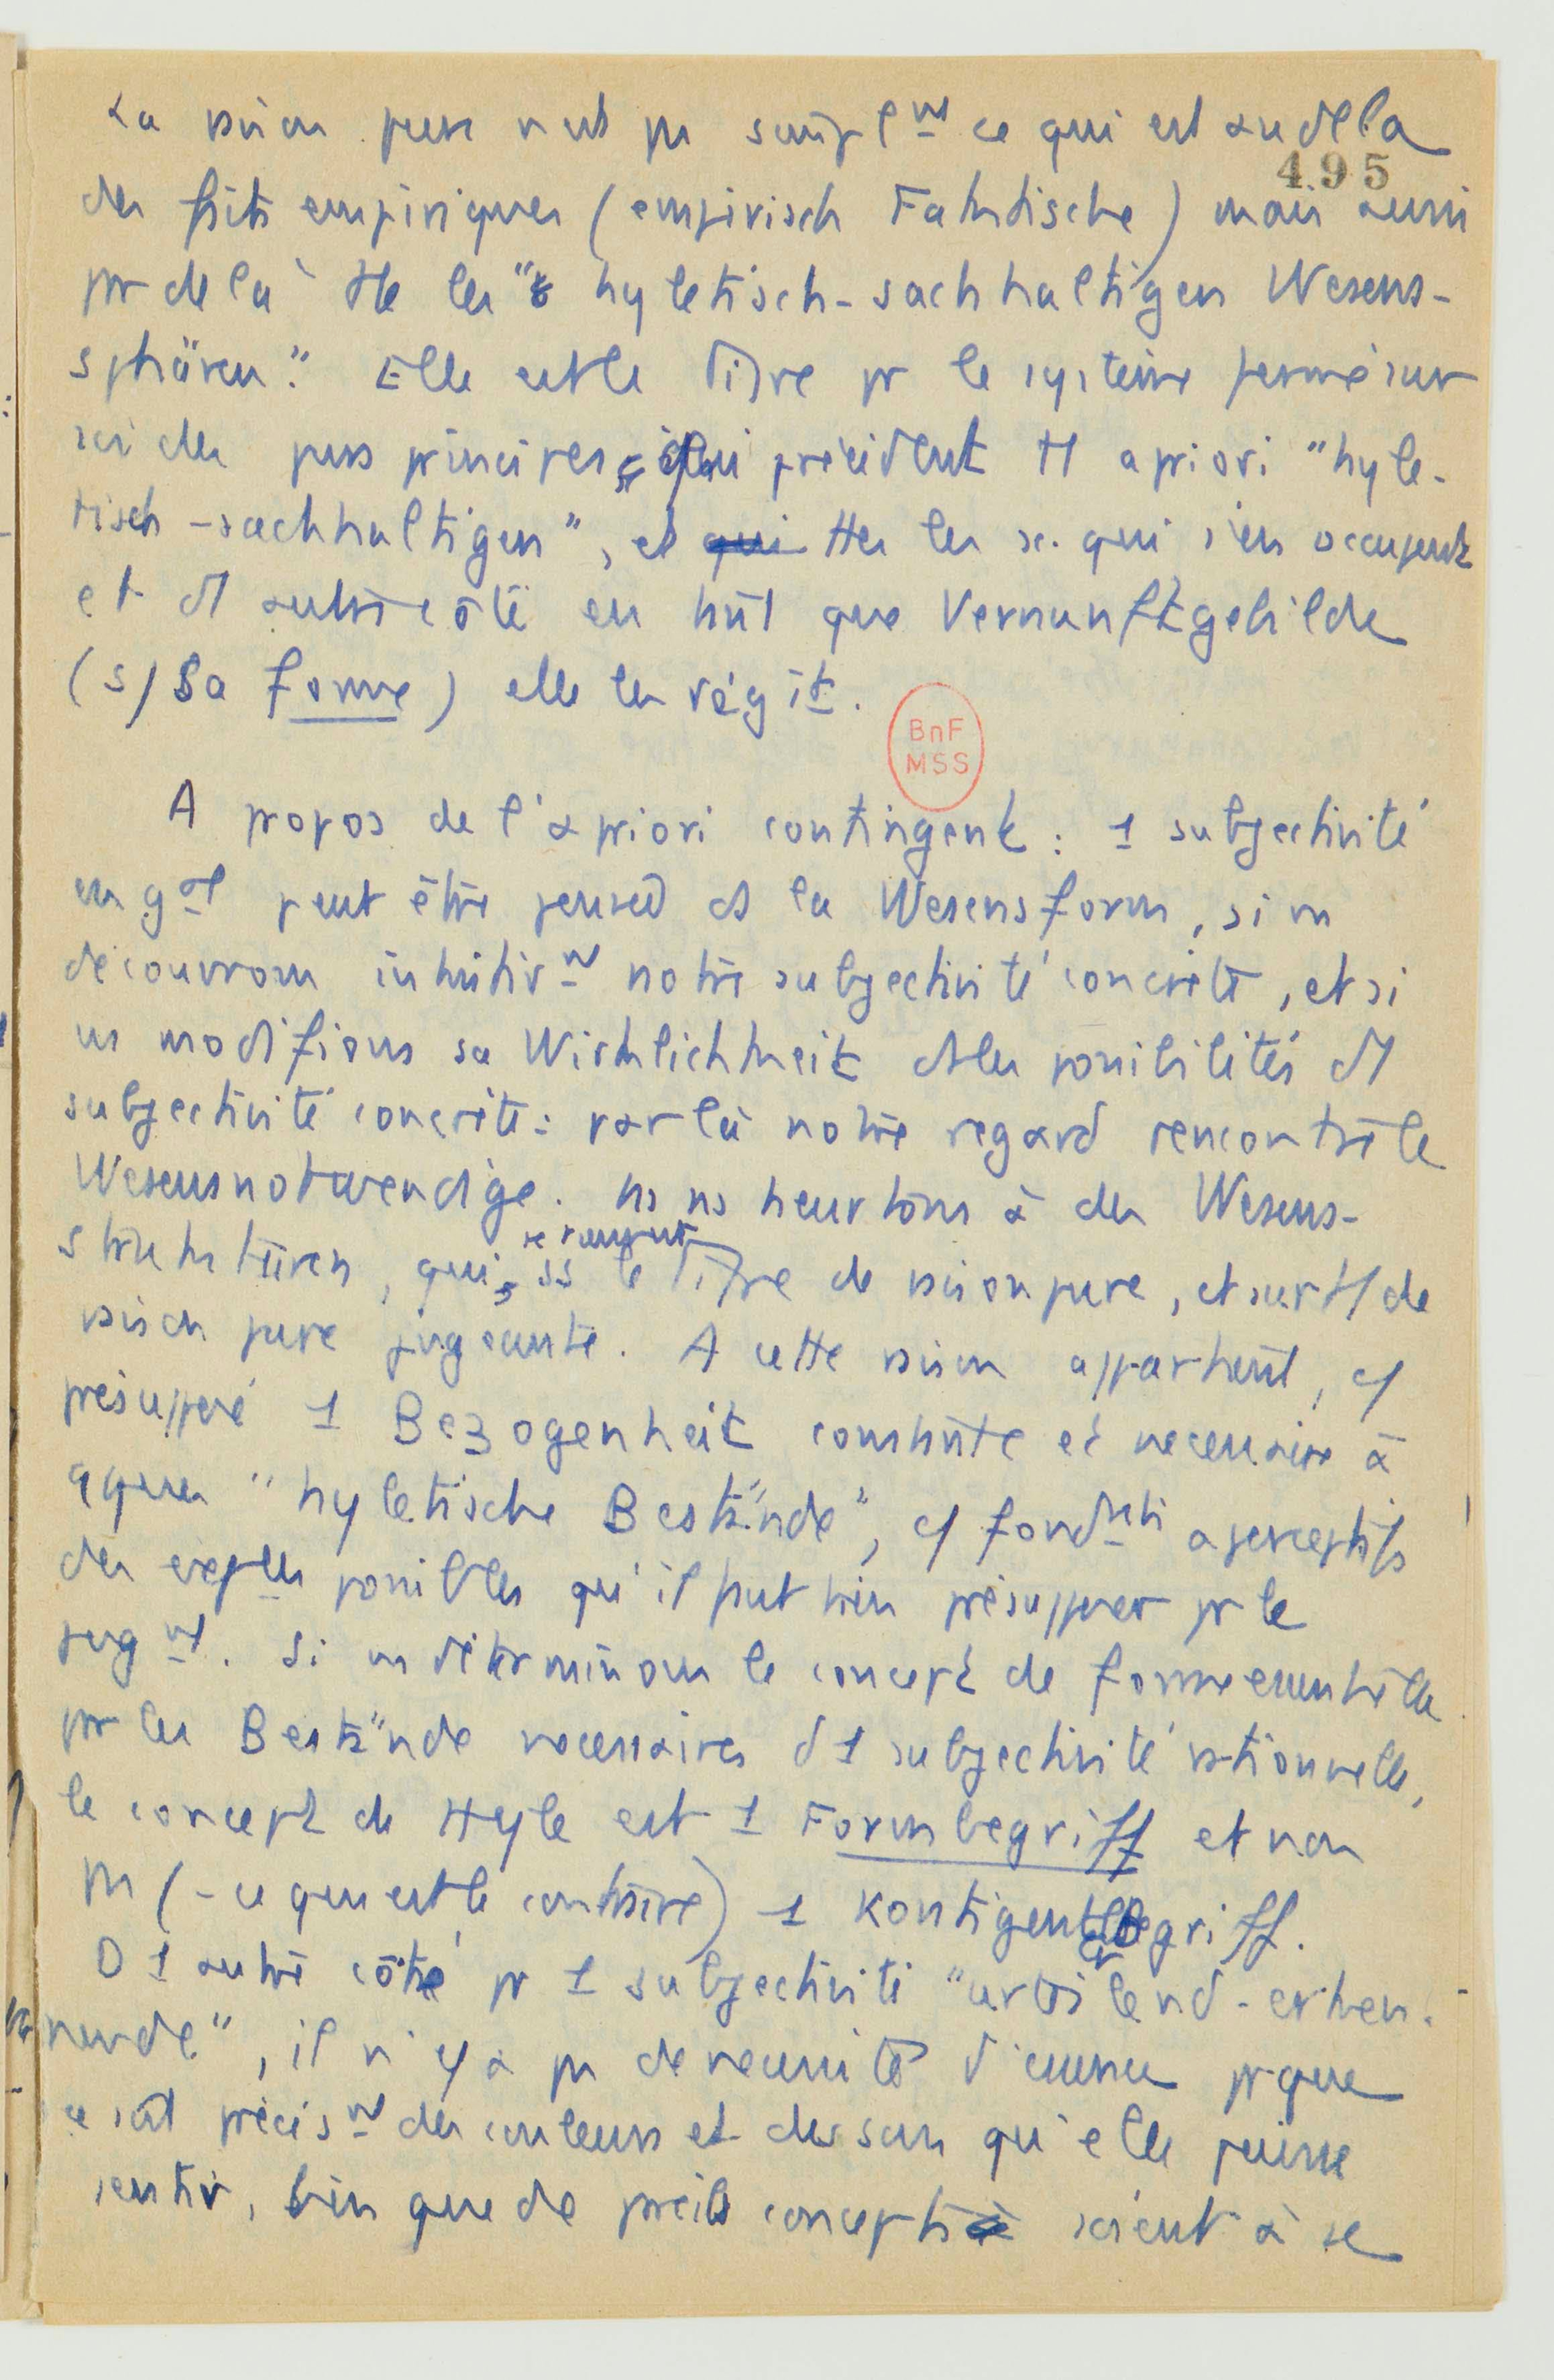 La raison pure n'est pas simplmt ce qui est au dela
495
des faits empiriques (empirisch Faktische) mais aussi
pr dela tte les "hyletisch-sachhaltigen Wesens-
sphären". Elle est le titre pr le système fermé sur
soi des purs principes, qui précèdent tt apriori "hyle-
tisch-sachhaltigen", et qui ttes les sc. qui s'en occupent
et d'1 autre côté en tant que Vernunftgebilde
(s/ sa forme) elle les régit.
BnF
MSS
A propos de l'apriori contingent : 1 subjectivité
en gal peut être pensée ds la Wesensform, si ns
découvrons intuitivmt notre subjectivité concrète, et si
ns modifions sa Wirklichkeit ds les possibilités d'1
subjectivité concrète : par là notre regard rencontre le
Wesensnotwendige. Ns ns heurtons à des Wesens-
strukturen, qui, ss le titre de raison pure, et surtt de
raison pure jugeante. A cette raison appartient, c/
présupposé 1 Bezogenheit constante et nécessaire à
qques "hyletische Bestände", c/ fondmts aperceptifs
des expces possibles qu'il faut bien présupposer pr le
jugmt. Si ns déterminons le concept de forme essentielle
pr les Bestände nécessaires d'1 subjectivité rationnelle,
le concept de Hyle est 1 Formbegriff et non
pas (- ce qui est le contraire) 1 Kontigenter Begriff.
D'1 autre côté pr 1 subjectivité "urteilend-erken-
nende", il n'y a pas de nécessité d'essence pr que
ce soit précismt des couleurs et des sons qu'elle puisse
sentir, bien que de pareils concepts soient à se